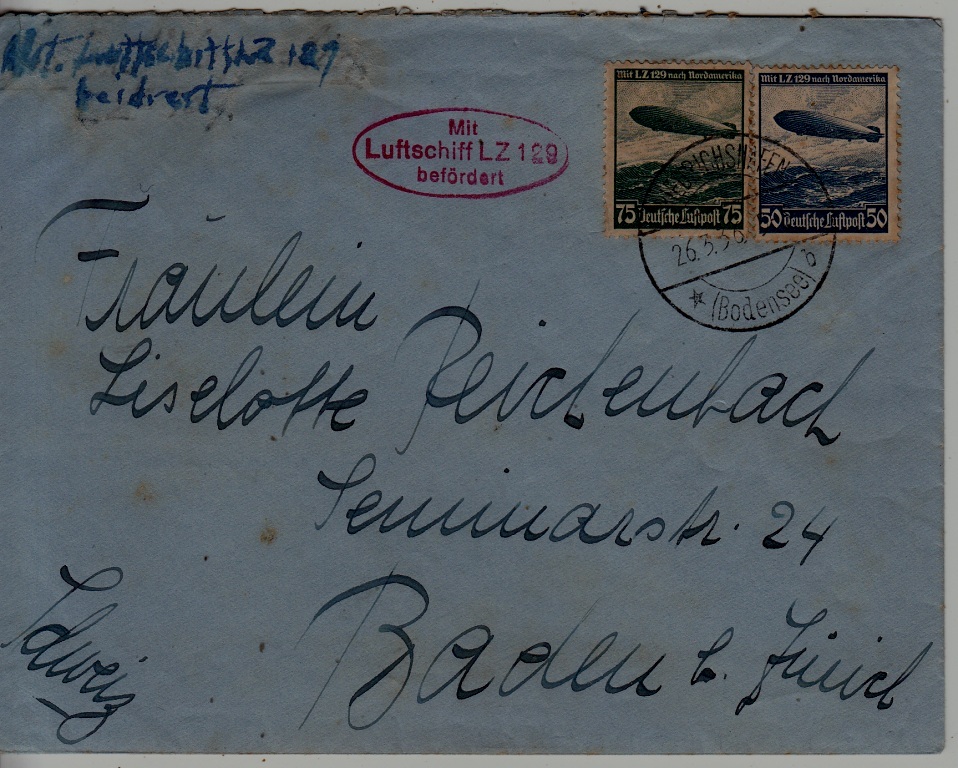 Luftschiff LZ 129
Mit
Luftschiff LZ 129
befördert
Mit LZ 129 nach Nordamerika
75 Deutsche Luftpost 75
Mit LZ 129 nach Nordamerika
50 Deutsche Luftpost 50
FRIEDRICHSHAFEN
26.3.36.
(Bodensee) b
Fräulein
Liselotte Reichenbach
Seminarstr. 24
Baden b. Zürich
Schweiz